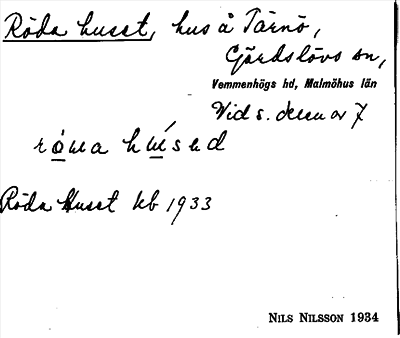 Röda huset, hus å Tärnö,
Gärdslövs sn,
Vemmenhögs hd, Malmöhus län
Vid s. delen av 7
Röda Huset kb 1933
NILS NILSSON 1934